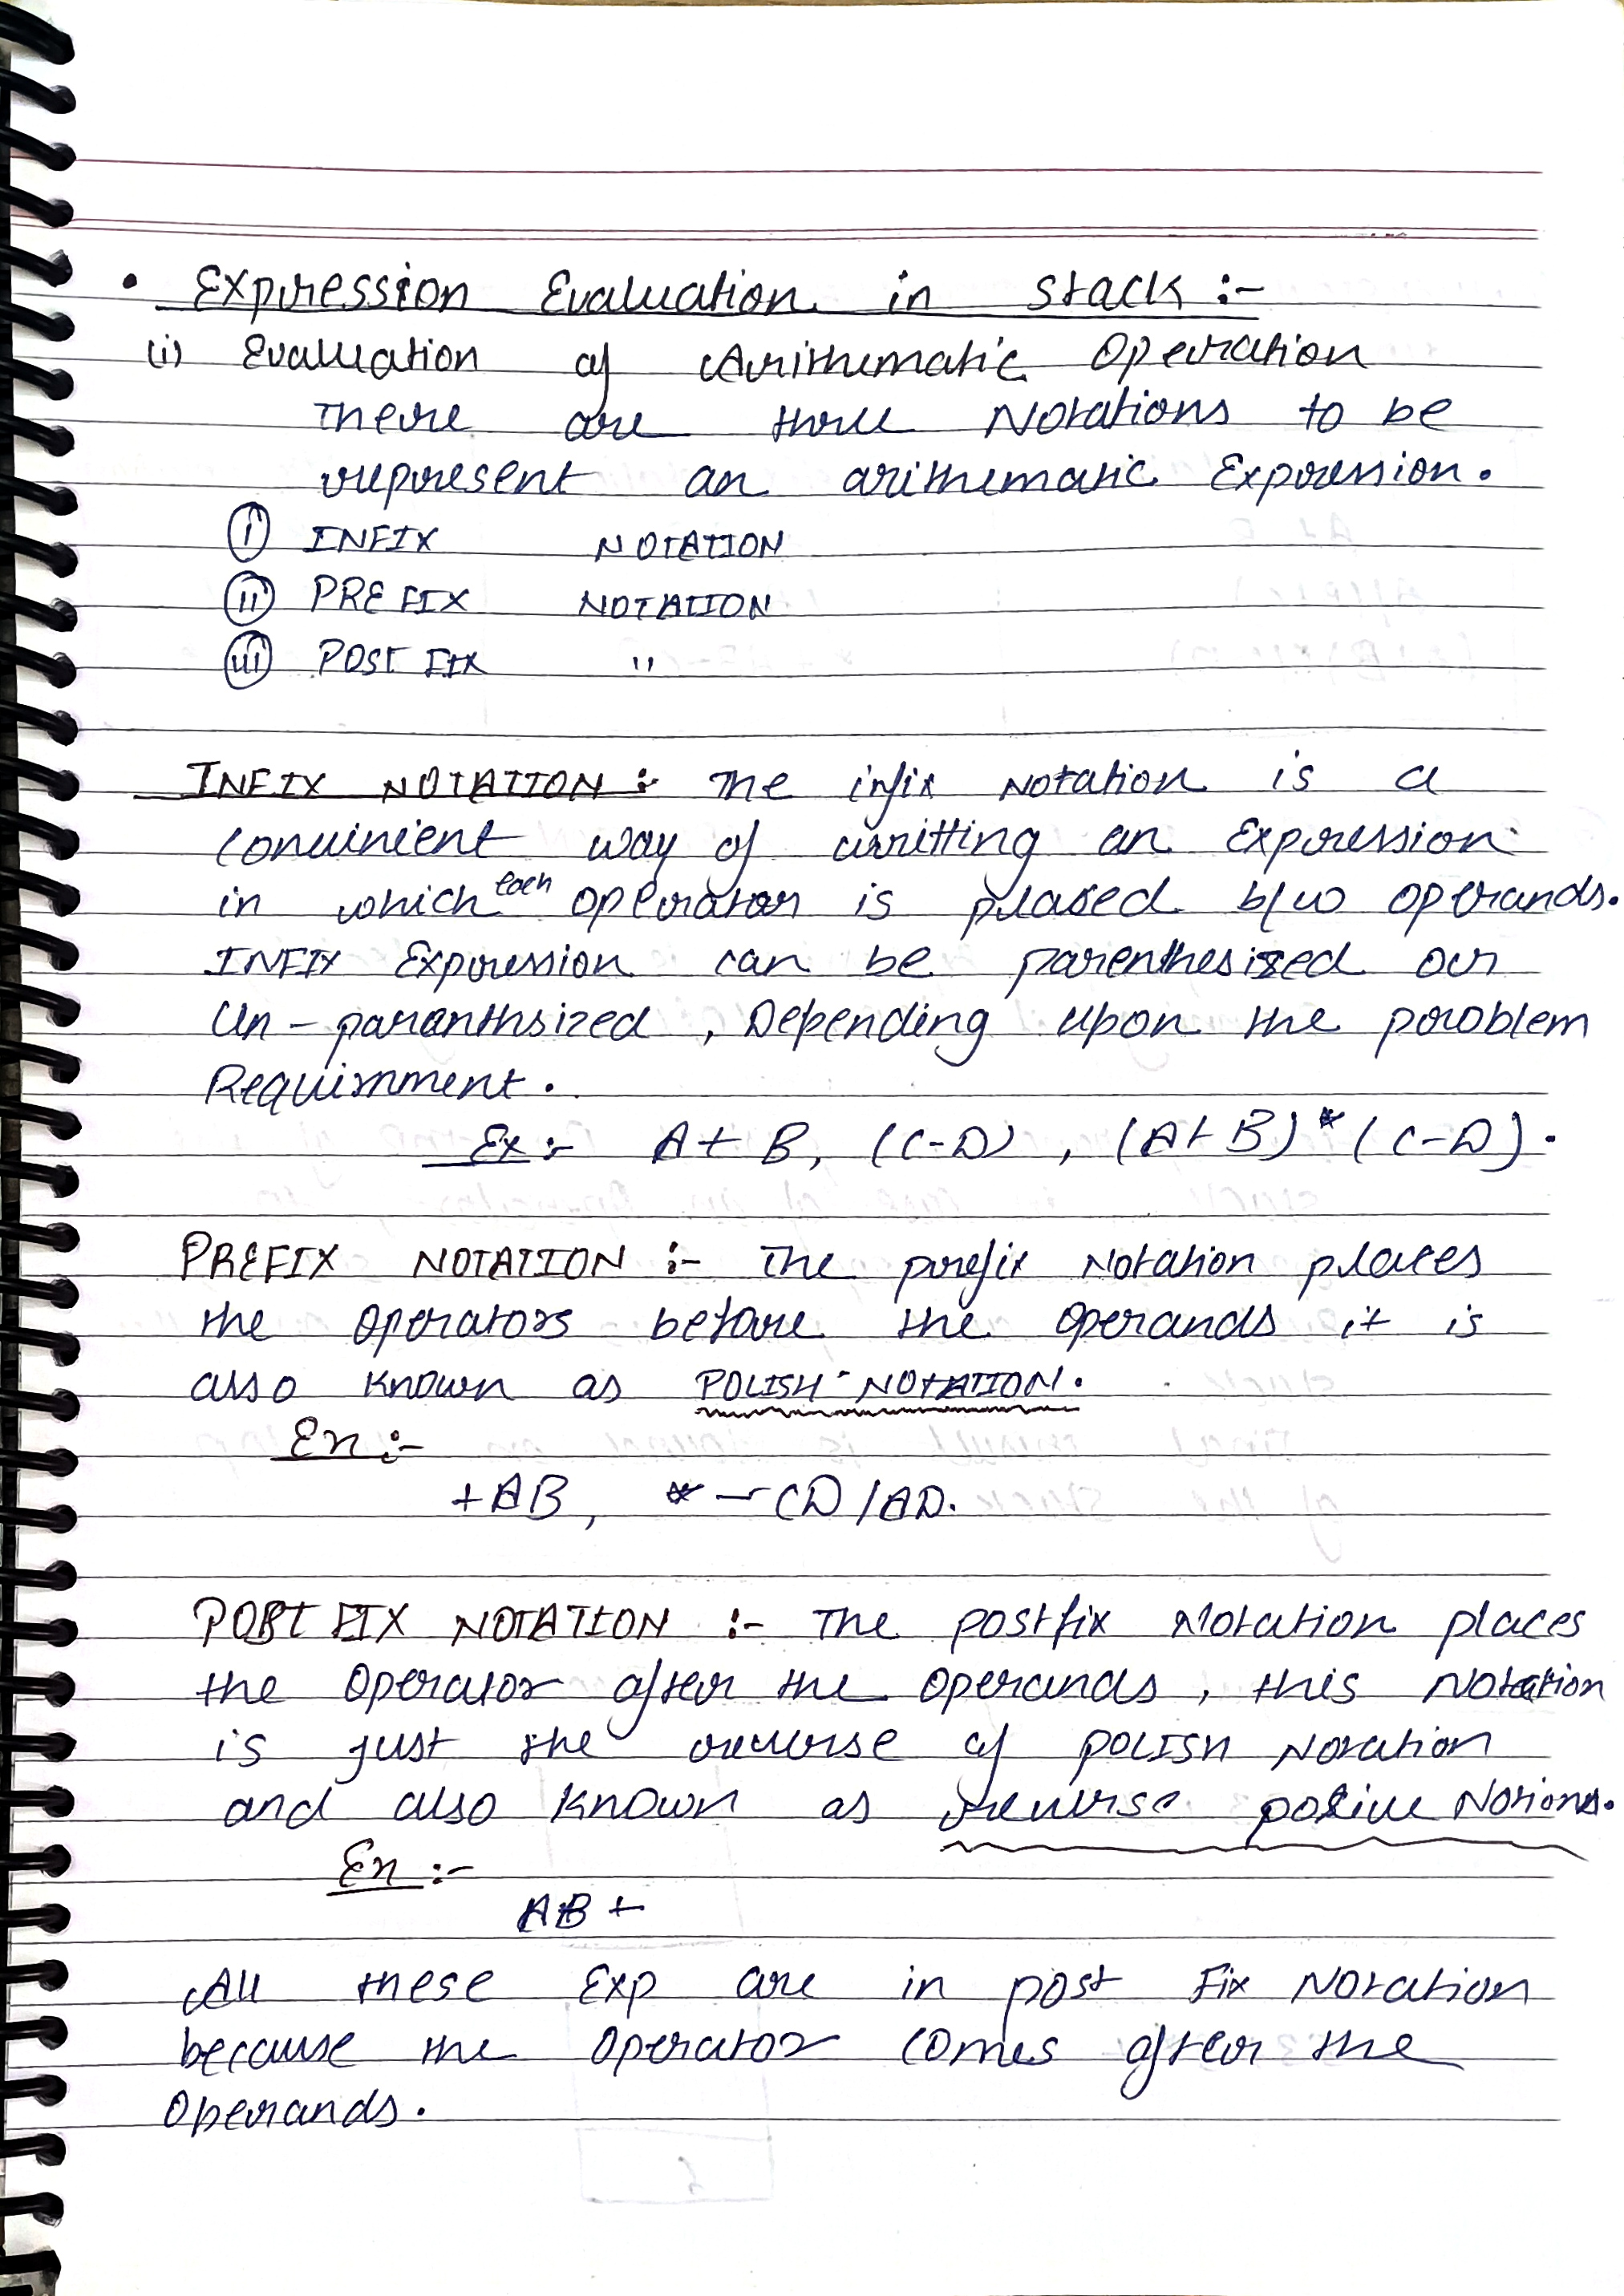 • Expression Evaluation in stack :-
(i) Evaluation of Arithematic Operation
There are three Notations to be
represent an arithematic Expression.
(i) INFIX NOTATION
(ii) PREFIX NOTATION
(iii) POSTFIX "
INFIX NOTATION :- The infix Notation is a
convinient way of writting an Expression
in which each operator is placed b/w operands.
INFIX Expression can be parenthesized or
Un-paranthsized, Depending upon the problem
Requirnment.
Ex :- A + B, (C-D), (A+B)*(C-D).
PREFIX NOTATION :- The prefix Notation places
the operators before the operands it is
also known as POLISH-NOTATION.
Ex :-
+AB, *-CD/AD.
POST FIX NOTATION :- The postfix Notation places
the operator after the operands, this Notation
is just the reverse of POLISH Notation
and also known as reverse
Ex :-
AB+
All these Exp are in post Fix Notation
because the operator comes after the
operands.